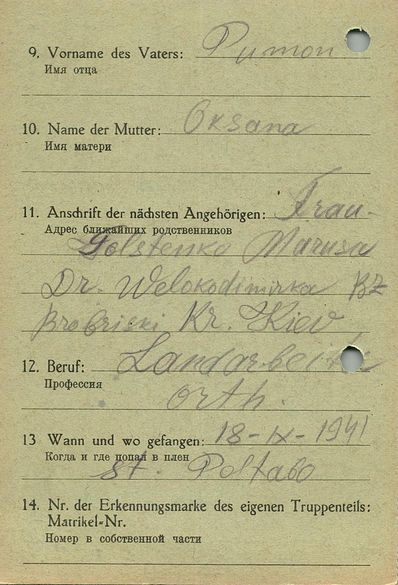 9. Vorname des Vaters: Pumon
Имя отца
10. Name der Mutter: Oksana
Имя матери
11. Anschrift der nächsten Angehörigen: Frau
Адрес ближайших родственников
Golstenko Marusa
Dr. Welokodimirka BZ
Brobriski Kr. Kiev,
12. Beruf: Landarbeiter
Профессия
orth.
13 Wann und wo gefangen: 18-IX-1941
Когда и где попал в плен
st. Poltabo
14. Nr. der Erkennungsmarke des eigenen Truppenteils:
Matrikel-Nr.
Номер в собственной части